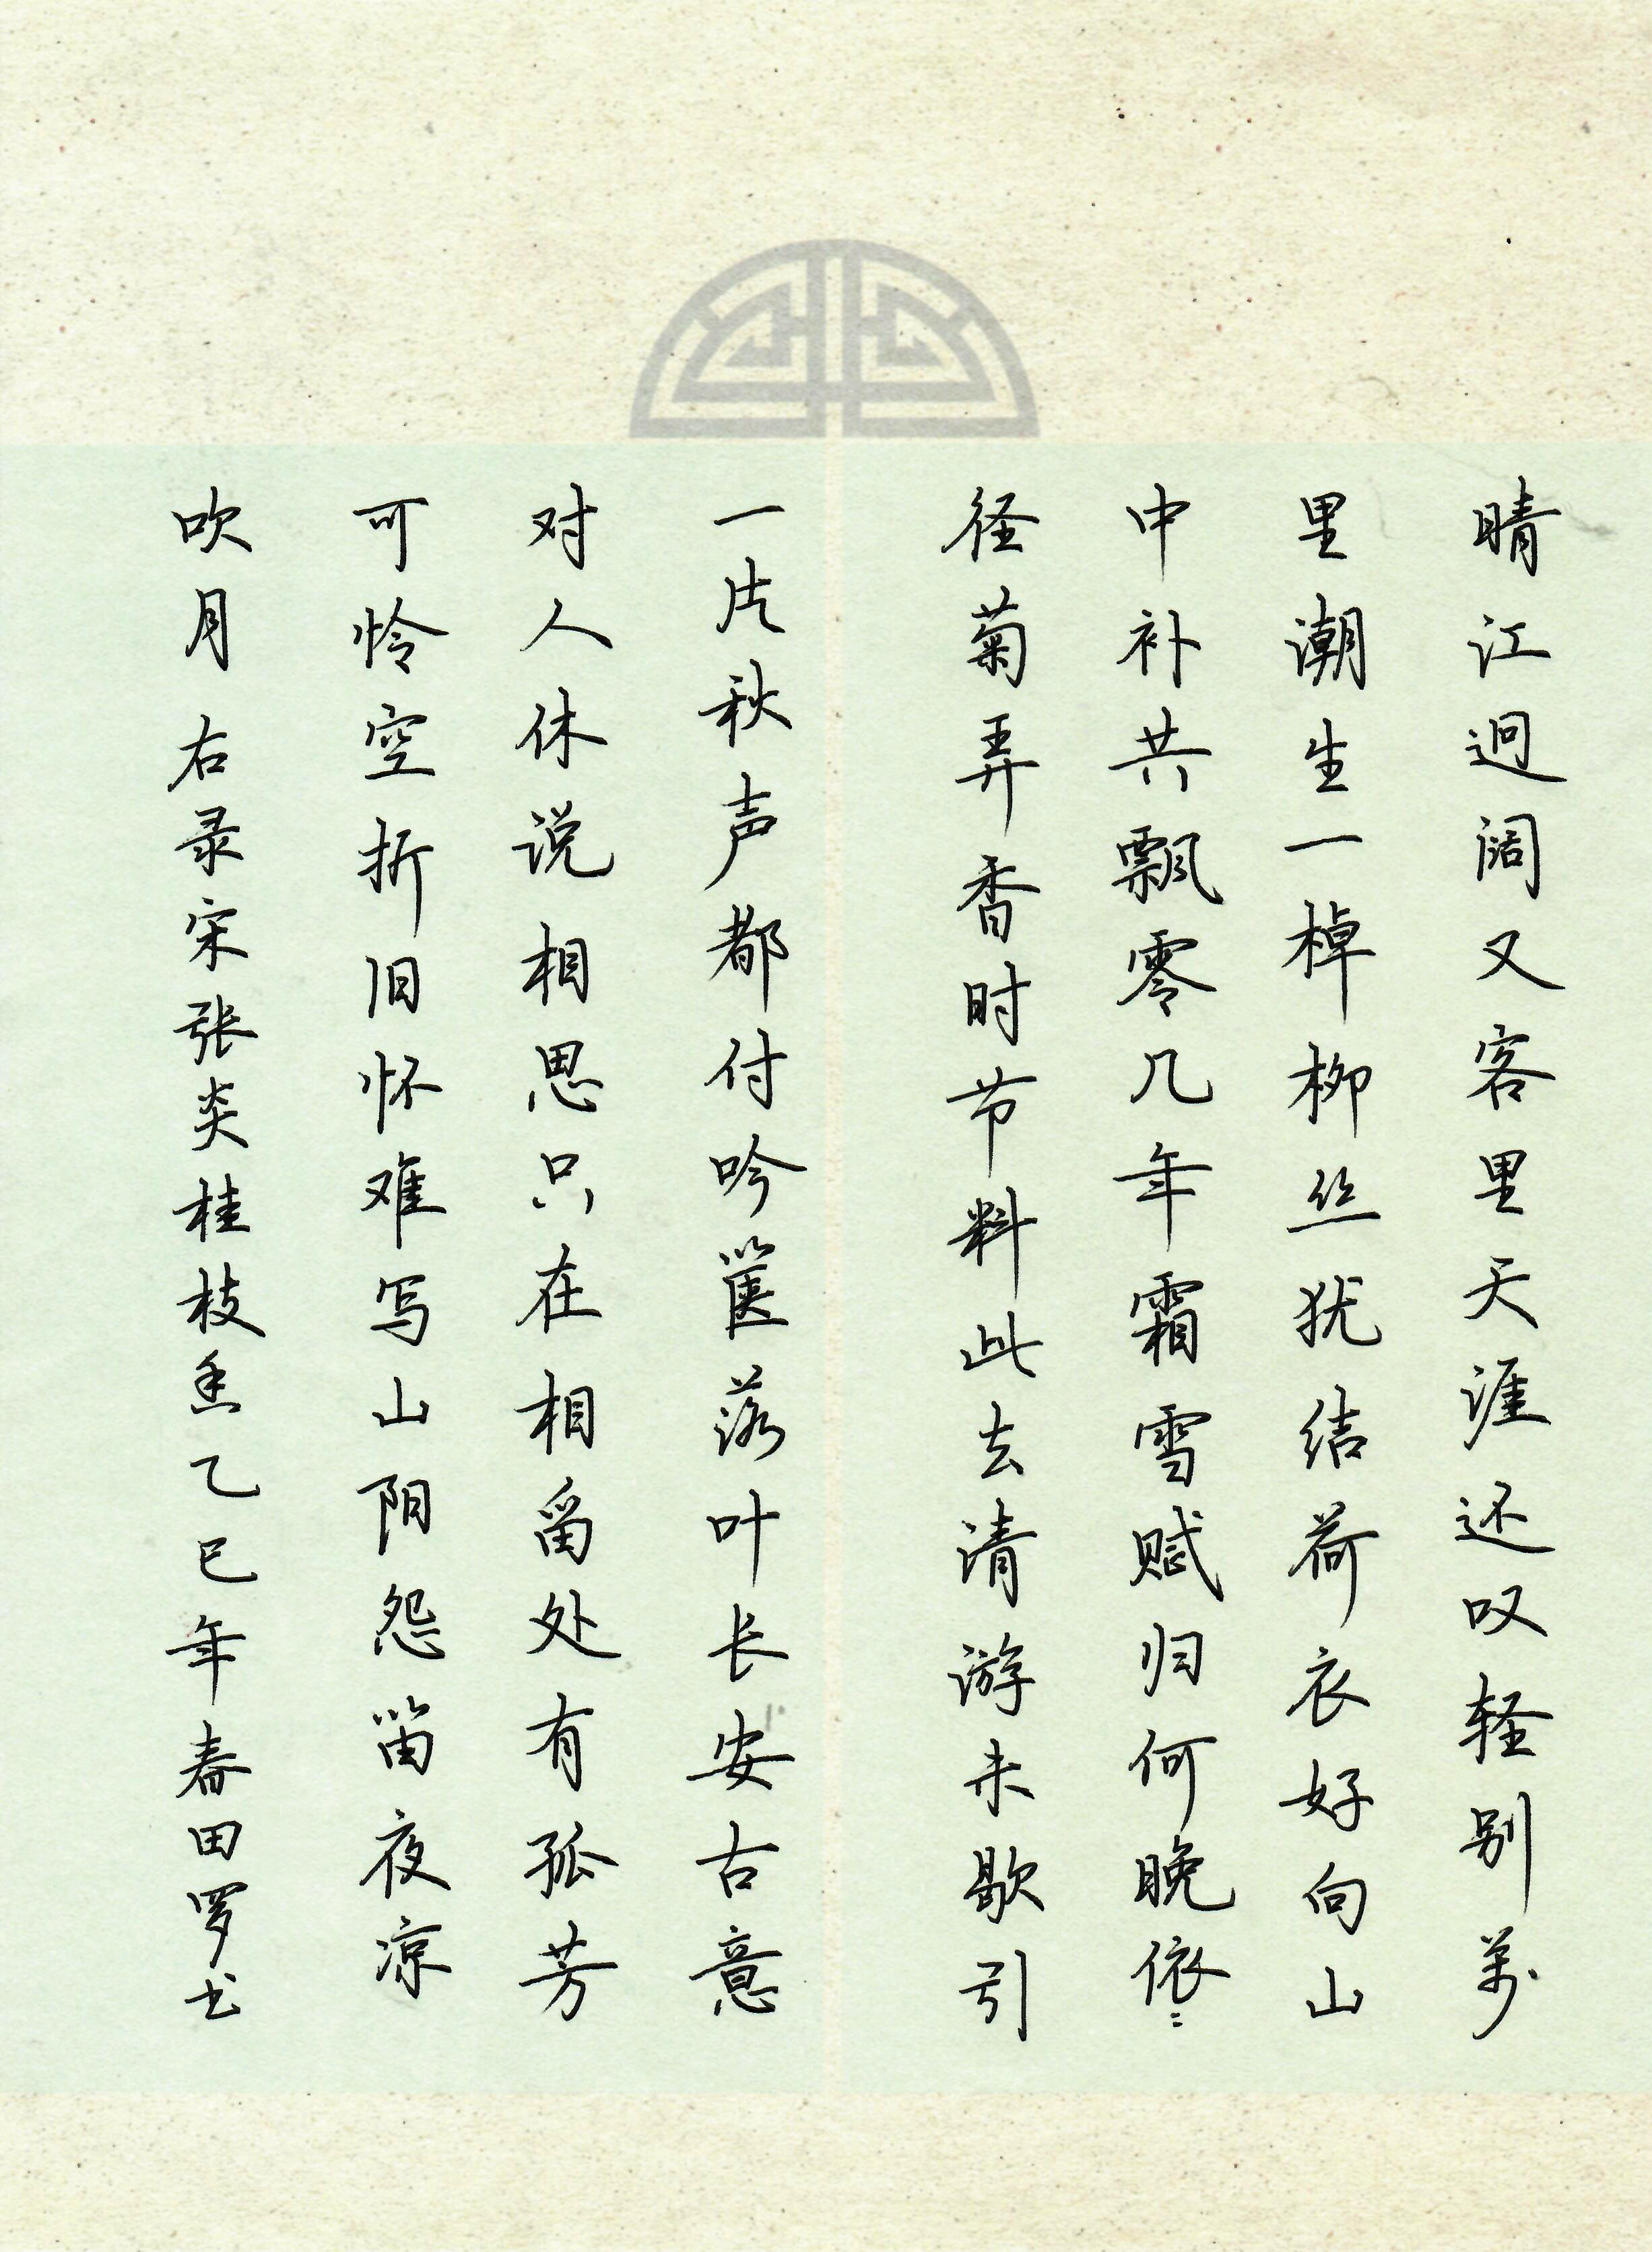 晴江迥阔又客里天涯还叹轻别万
里潮生一棹柳丝犹结荷衣好向山
中补共飘零几年霜雪赋归何晚依〻
径菊弄香时节料此去清游未歇引
一片秋声都付吟箧落叶长安古意
对人休说相思只在相留处有孤芳
可怜空折旧怀难写山阳怨笛夜凉
吹月右录宋张炎桂枝香乙巳年春田罗书